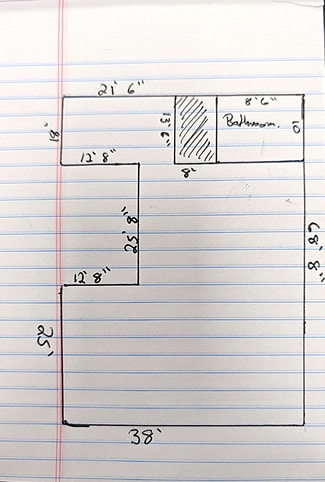 21' 6"
8' 6"
18'
13' 6"
Bathroom.
10
12' 8"
8'
25' 8"
68' 8"
12' 8"
25'
38'